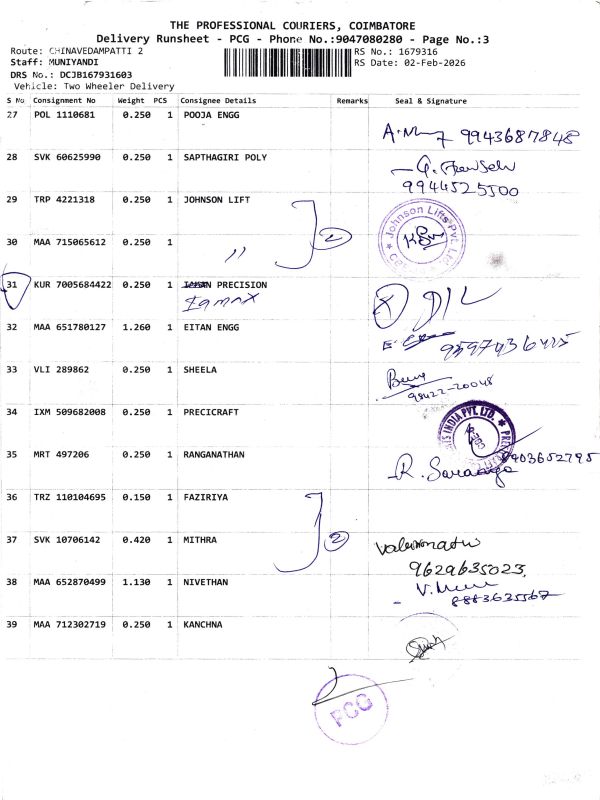 THE PROFESSIONAL COURIERS, COIMBATORE
Delivery Runsheet - PCG - Phone No.:9047080280 - Page No.:3
Route: CHINAVEDAMPATTI 2
RS No.: 1679316
Staff: MUNIYANDI
RS Date: 02-Feb-2026
DRS No.: DCJB167931603
Vehicle: Two Wheeler Delivery
S No Consignment No Weight PCS Consignee Details Remarks Seal & Signature
27 POL 1110681 0.250 1 POOJA ENGG
9943687848
28 SVK 60625990 0.250 1 SAPTHAGIRI POLY
9944525500
29 TRP 4221318 0.250 1 JOHNSON LIFT
Johnson Lifts Pvt. Ltd.
2
30 MAA 715065612 0.250 1 "
31 KUR 7005684422 0.250 1 PRECISION
D/L
32 MAA 651780127 1.260 1 EITAN ENGG
33 VLI 289862 0.250 1 SHEELA
98422-20048
34 IXM 509682008 0.250 1 PRECICRAFT
INDIA PVT. LTD.
35 MRT 497206 0.250 1 RANGANATHAN
9403652795
36 TRZ 110104695 0.150 1 FAZIRIYA
37 SVK 10706142 0.420 1 MITHRA
2
9629635023
38 MAA 652870499 1.130 1 NIVETHAN
8883635567
39 MAA 712302719 0.250 1 KANCHNA
PCG